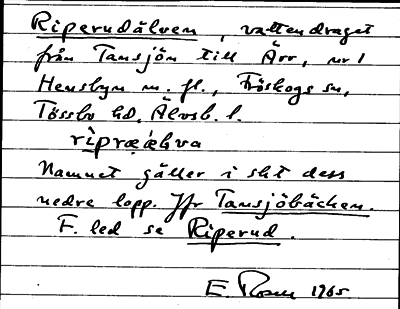 Riperudälven, vattendraget
från Tansjön till Ärr, nr 1
Hensbyn m. fl., Fröskogs sn,
Tössbo hd, Älvsb. l.
Namnet gäller i sht dess
nedre lopp. Jfr Tansjöbäcken.
F. led se Riperud.
E. Rosen 1965